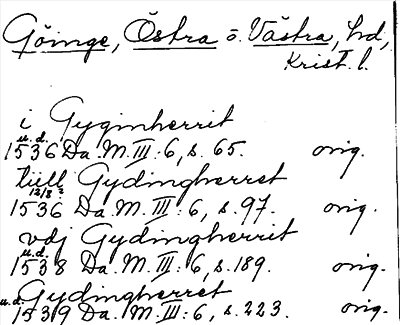 Göinge, Östra o. Västra, hd,
Krist. l.
i Gyginherrit
u.d.
1536 Da. M. III: 6, s. 65. orig.
tiill Gydingherret
12/8 ?
1536 Da. M. III: 6, s. 97. orig.
vdj Gydingherrit
u.d.
1538 Da. M. III: 6, s. 189. orig.
Gydingherret
u.d. 1539 Da. M. III: 6, s. 223. orig.